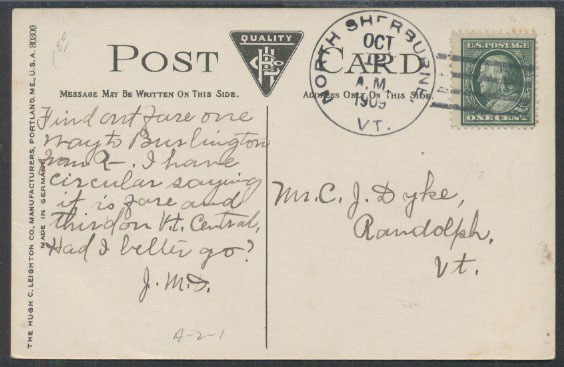 THE HUGH C. LEIGHTON CO., MANUFACTURERS, PORTLAND, ME., U.S.A.
MADE IN GERMANY
QUALITY
POST CARD
MESSAGE MAY BE WRITTEN ON THIS SIDE.
ADDRESS ONLY ON THIS SIDE.
NORTH SHERBURNE
OCT
A.M.
1909
VT.
U.S. POSTAGE
ONE CENT
Find out fare one
way to Burlington
from R—. I have
circular saying
it is fare and
third on Vt. Central,
Had I better go?
J. M. D.
Mr. C. J. Dyke,
Randolph,
Vt.
A-2-1